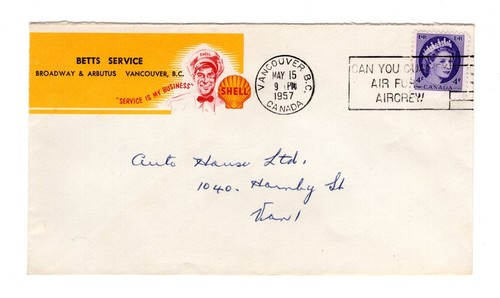 BETTS SERVICE
BROADWAY & ARBUTUS VANCOUVER, B.C.
"SERVICE IS MY BUSINESS"
SHELL
SHELL
VANCOUVER, B.C.
MAY 15
9 PM
1957
CANADA
CAN YOU
AIR
AIRCREW
4¢
CANADA
Auto House Ltd.
1040. Hornby St
Van 1